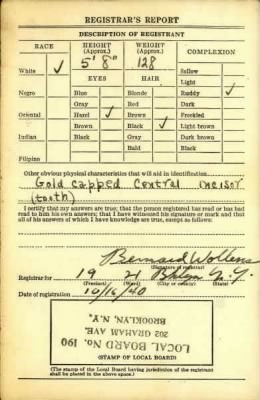 REGISTRAR'S REPORT
DESCRIPTION OF REGISTRANT
RACE HEIGHT (Approx.) WEIGHT (Approx.) COMPLEXION
5' 8" 128
White ✓ Sallow
EYES HAIR Light
Negro Blue Blonde Ruddy ✓
Gray Red Dark
Oriental Hazel ✓ Brown Freckled
Brown Black ✓ Light brown
Indian Black Gray Dark brown
Bald Black
Filipino
Other obvious physical characteristics that will aid in identification
Gold capped Central incisor
(tooth)
I certify that my answers are true; that the person registered has read or has had
read to him his own answers; that I have witnessed his signature or mark and that
all of his answers of which I have knowledge are true, except as follows:
Bernard
(Signature of registrar)
Registrar for 19 21 Bklyn N.Y.
(Precinct) (Ward) (City or county) (State)
Date of registration 10/16/40
LOCAL BOARD No. 190
202 GRAHAM AVE.
BROOKLYN, N.Y.
(STAMP OF LOCAL BOARD)
(The stamp of the Local Board having jurisdiction of the registrant
shall be placed in the above space.)